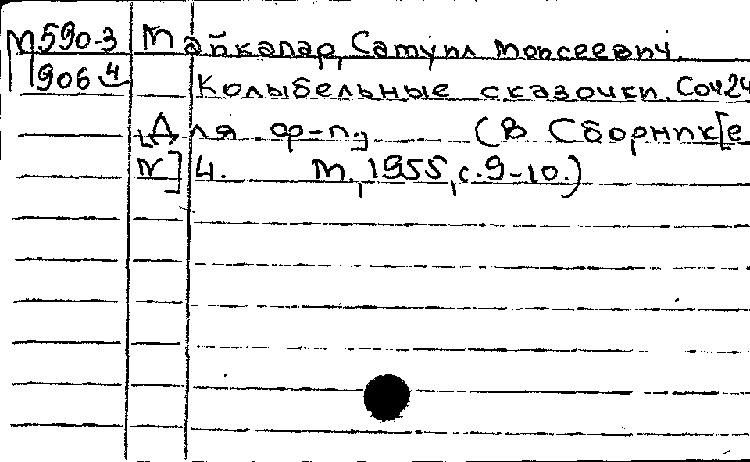 М590-3 Майкапар, Самуил Моисеевич.
906 4 Колыбельные сказочки. Соч 24
[Для ф-п.] (В Сборник[е
№] 4. М., 1955, с. 9-10.)